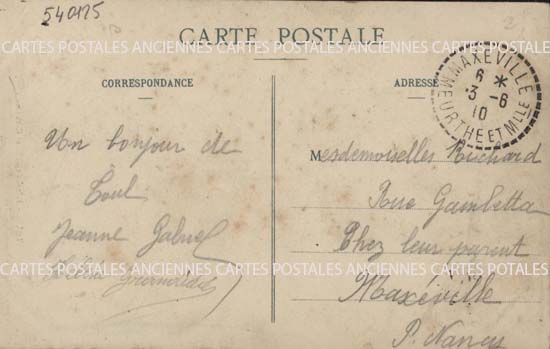 540175
CARTES POSTALES ANCIENNES CARTES POSTALES ANCIENNES CARTES POSTALES
CARTE POSTALE
CORRESPONDANCE
ADRESSE
MAXEVILLE
6 *
3 - 6
10
MEURTHE ET MLLE
Un bonjour de
Toul
Jeanne Gabriel
Mesdemoiselles Richard
Rue Gambetta
Chez leur parent
CARTES POSTALES ANCIENNES CARTES POSTALES ANCIENNES CARTES POSTALES
Maxéville
P. Nancy